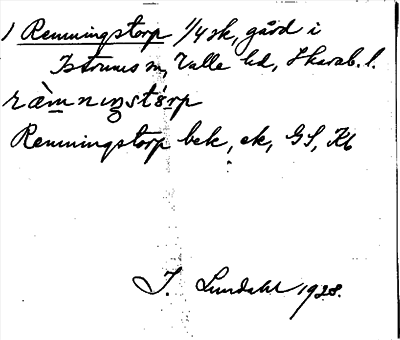 1 Remningstorp 1/4 sk, gård i
Istrums sn, Valle hd, Skarab. l.
ràmnıŋstórp
Remningstorp bek, ek, GS, Kb
I. Lundahl 1928.